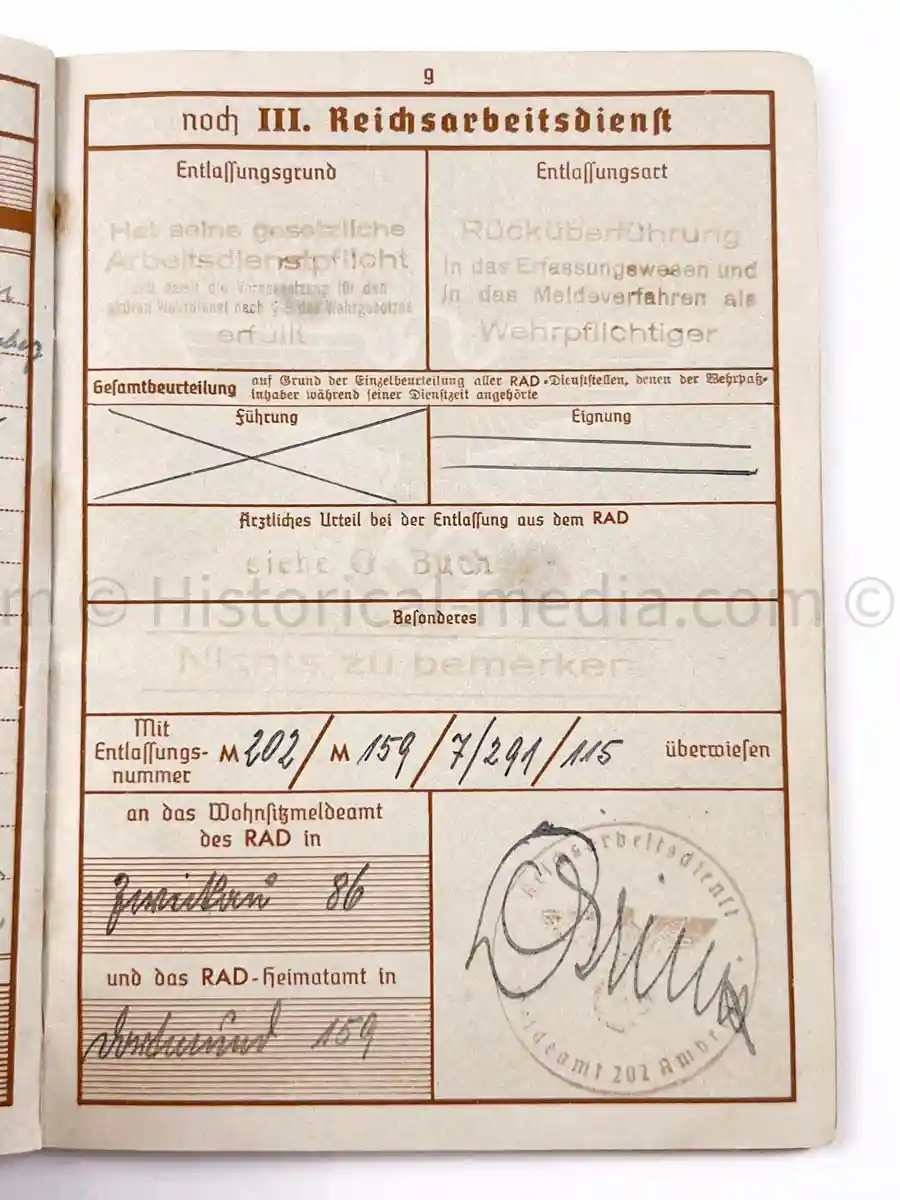 9
noch III. Reichsarbeitsdienst
Entlassungsgrund
Hat seine gesetzliche
Arbeitsdienstpflicht
und damit die Voraussetzung für den
aktiven Wehrdienst nach § 8 des Wehrgesetzes
erfüllt
Entlassungsart
Rücküberführung
in das Erfassungswesen und
in das Meldeverfahren als
Wehrpflichtiger
Gesamtbeurteilung auf Grund der Einzelbeurteilung aller RAD-Dienststellen, denen der Wehrpaß-
inhaber während seiner Dienstzeit angehörte
Führung
Eignung
Ärztliches Urteil bei der Entlassung aus dem RAD
siehe G Buch
© Historical-media.com ©
Besonderes
Nichts zu bemerken
Mit
Entlassungs-
nummer
M 202 / M 159 / 7/291 / 115 überwiesen
an das Wohnsitzmeldeamt
des RAD in
Zwickau 86
und das RAD-Heimatamt in
Dortmund 159
Reichsarbeitsdienst
ldeamt 202